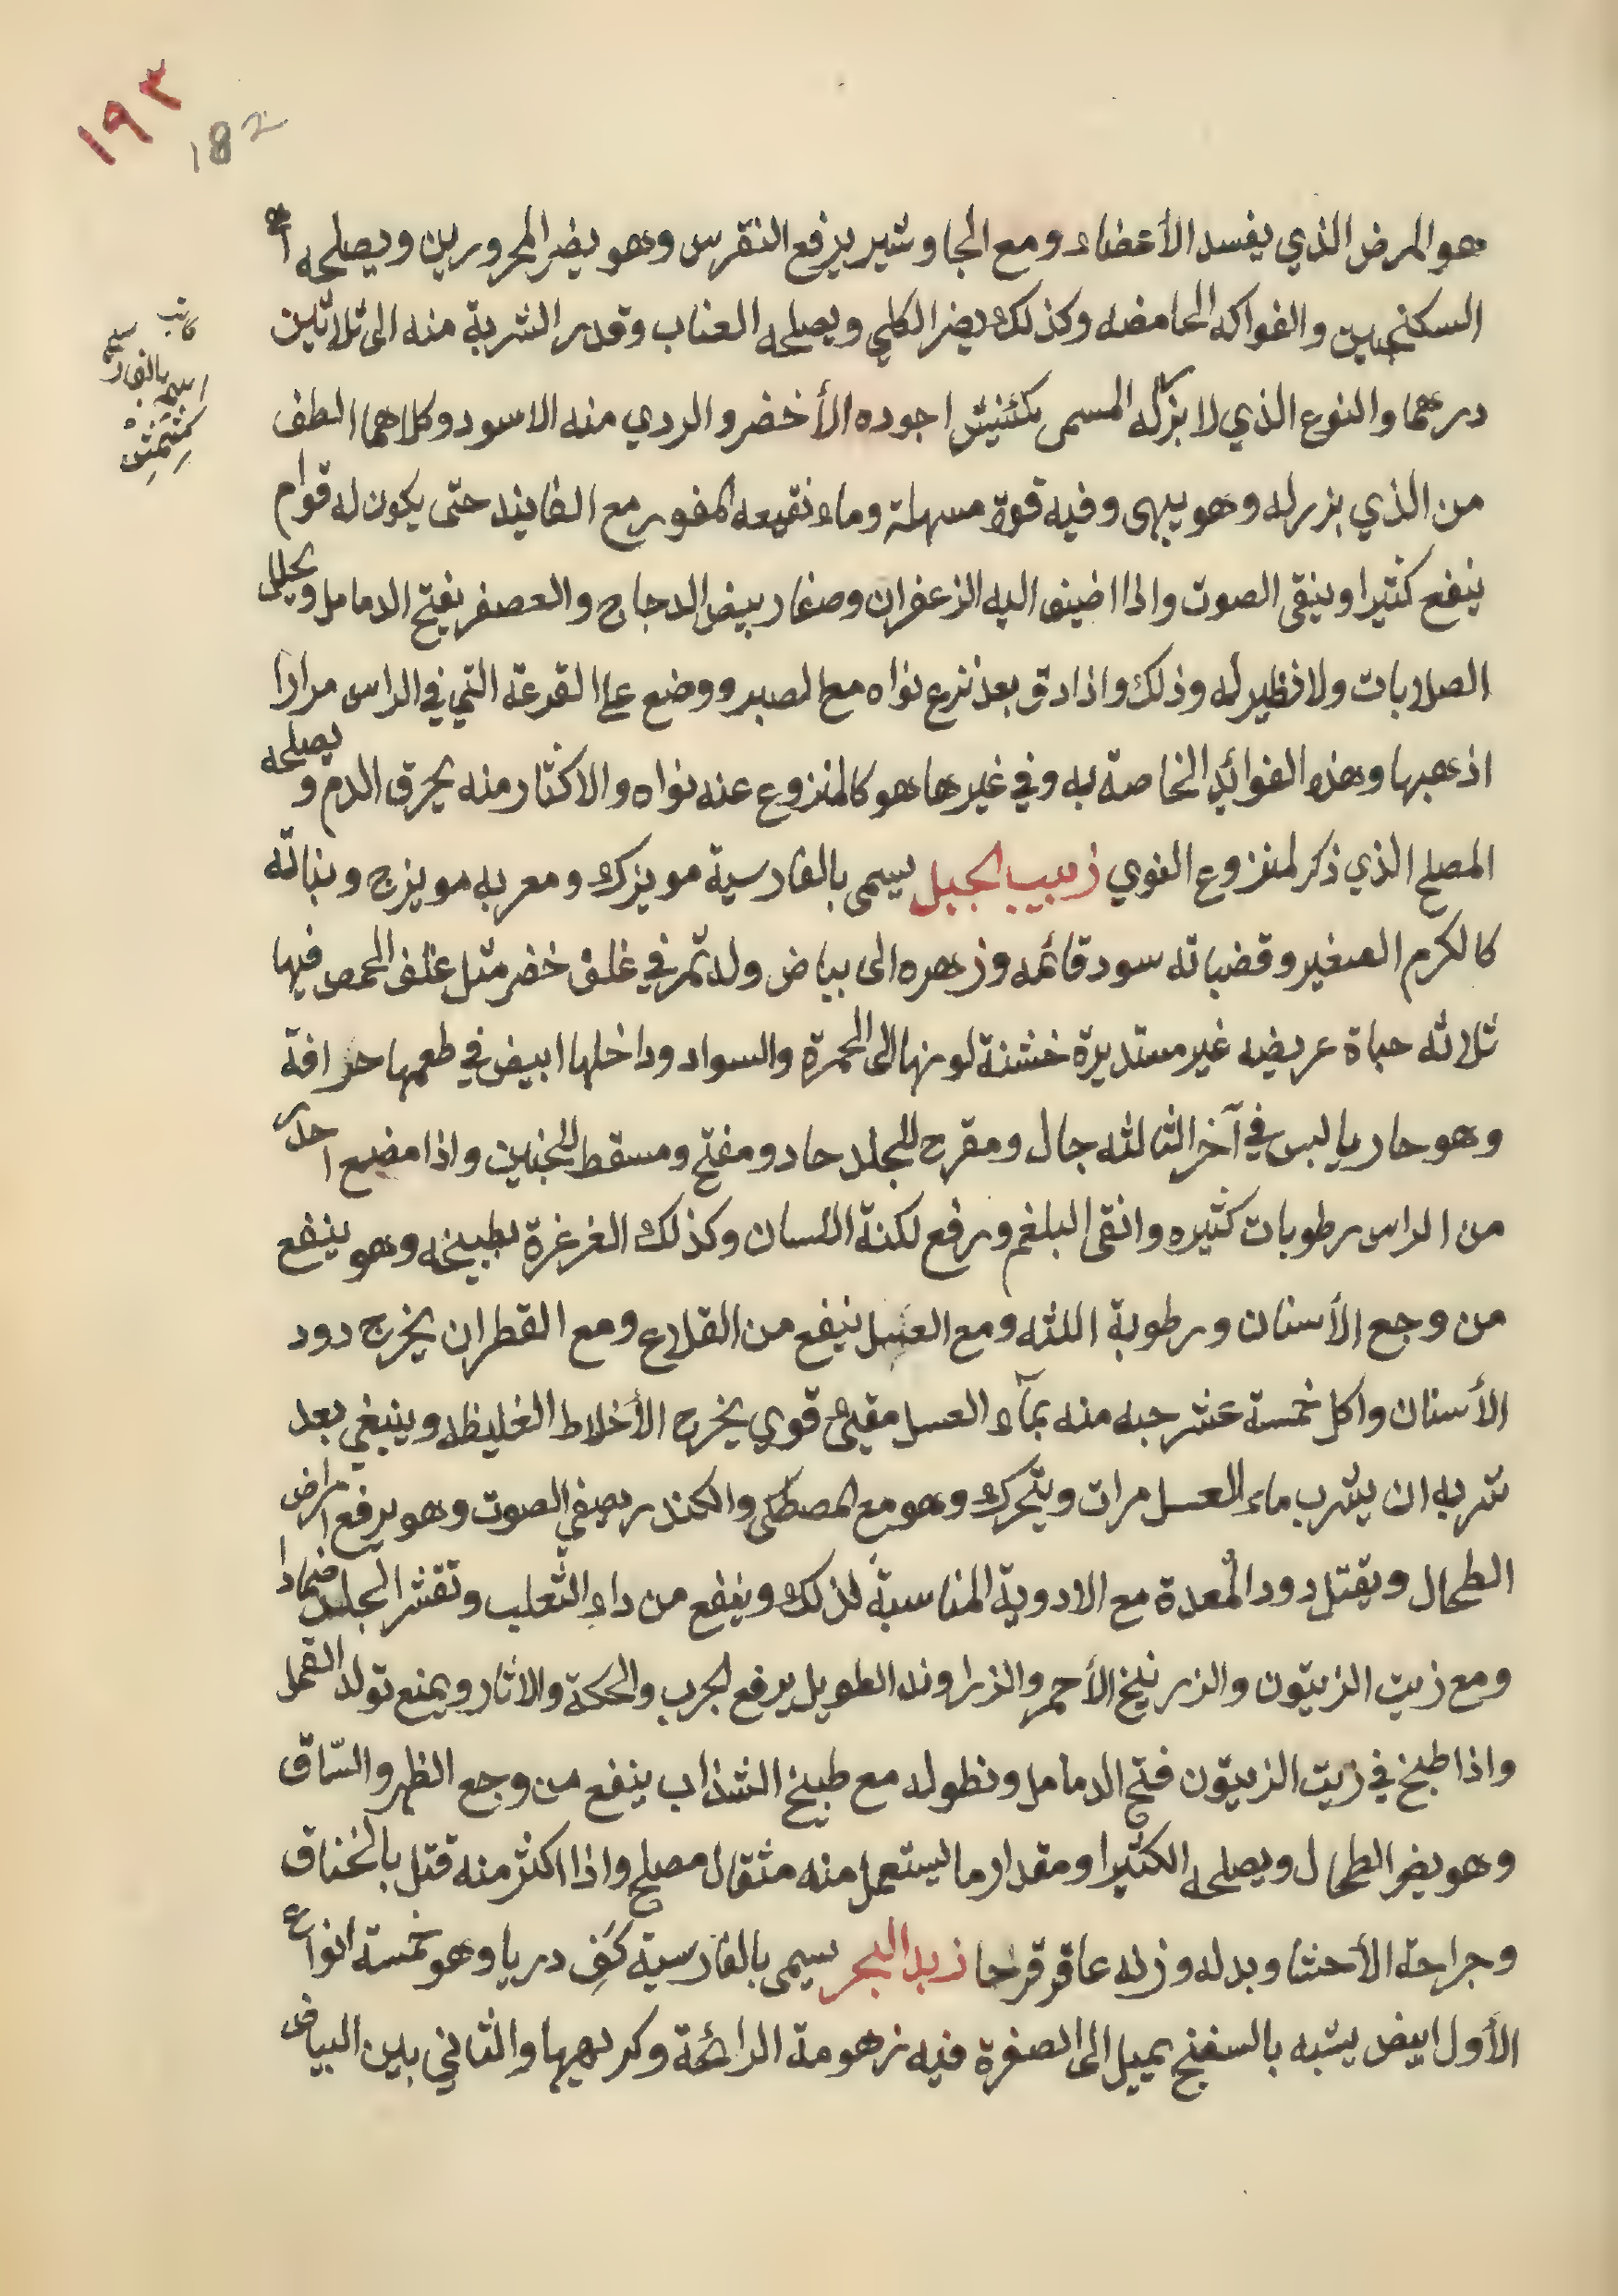 ١٩٣
182
هو المرض الذي يفسد الأعضاء ومع الجاوشير يرفع النقرس وهو يضر المحرورين ويصلحه
السكنجبين والفواكه الحامضه وكذلك يضر الكلي ويصلحه العناب وقدر الشربة منه الى ثلاثين
درهما والنوع الذي لا بزر له المسمى بكشنيش اجوده الأخضر والردي منه الاسود وكلاهما الطف
من الذي بزر له وهو يبهى وفيه قوة مسهلة وماء نقيعه المفور مع الفانيذ حتى يكون له قوام
ينفع كثيرا وينقى الصوت واذا اضيف اليه الزعفران وصفار بيض الدجاج والعصفر يفتح الدمامل ويحلل
الصلابات ولا نظير له وذلك واذا دق بعد نزع نواه مع الصبر ووضع على القرعة التي في الراس مرارا
اذهبها وهذه الفوائد الخاصة به وفي غيرها هو كالمنزوع عنه نواه والاكثار منه يحرق الدم ويصلحه
المصلح الذي ذكر لمنزوع النوي زبيب الجبل يسمى بالفارسية مويزك ومعربه مويزج ونباته
كالكرم الصغير وقضبانه سود قائمه وزهره الى بياض وله ثمر في غلف خضر مثل غلف الحمص فيها
ثلاثه حباة عريضه غير مستديرة خشنة لونها الى الحمرة والسواد وداخلها ابيض في طعمها حرافة
وهو حار يابس في آخر الثالثه جال ومقرح للجلد حاد ومفتح ومسقط للجنين واذا مضع احدر
من الراس رطوبات كثيره وانقى البلغم ورفع لكنة اللسان وكذلك الغرغرة بطبيخه وهو ينفع
من وجع الأسنان ورطوبة اللثه ومع العسل ينفع من القلاع ومع القطران يخرج دود
الأسنان واكل خمسة عشر حبه منه بمآء العسل مقيئ قوي يخرج الأخلاط الغليظه وينبغي بعد
شربه ان يشرب ماء العسل مرات ويتحرك وهو مع المصطكى والكندر يصفي الصوت وهو يرفع امراض
الطحال ويقتل دود المعدة مع الادوية المناسبة لذلك وينفع من داء الثعلب وتقشر الجلد ضمادا
ومع زيت الزيتون والزرنيخ الأحمر والزراوند الطويل يرفع الجرب والحكة والاثار ويمنع تولد القمل
واذا طبخ في زيت الزيتون فتح الدمامل ونطوله مع طبيخ الشذاب ينفع من وجع الظهر والسّاق
وهو يضر الطحال ويصلحه الكثيرا ومقدار ما يستعمل منه مثقال مصلح واذا اكثر منه قتل بالخناق
وجراحة الأحشا وبدله وزنه عاقرقرحا زبد البحر يسمى بالفارسية كف دريا وهو خمسة انواع
الأول ابيض يشبه بالسفنج يميل الى الصفرة فيه زهومة الرائحة وكريهها والثاني بين البياض